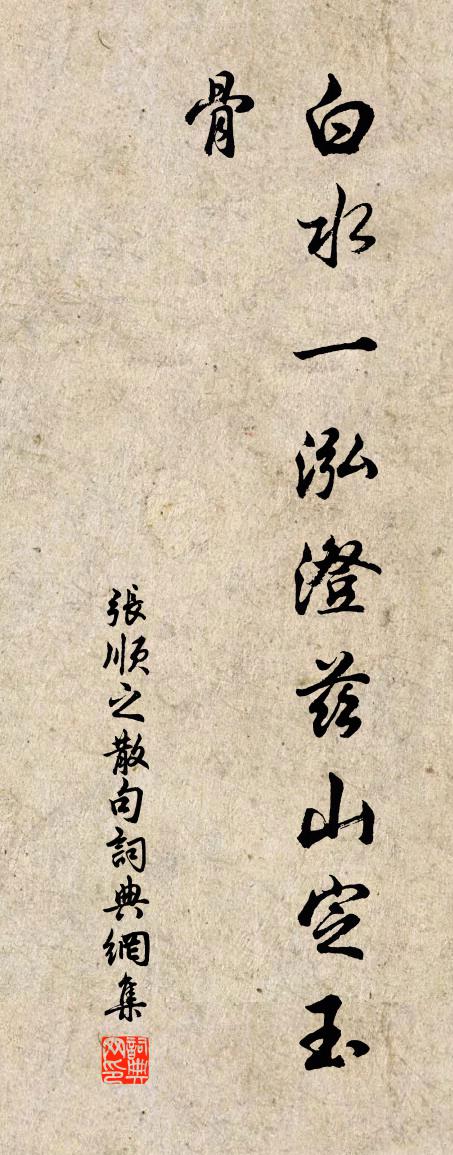 白水一泓澄茲山定玉
骨
張順之散句詞典網集
詞典网印